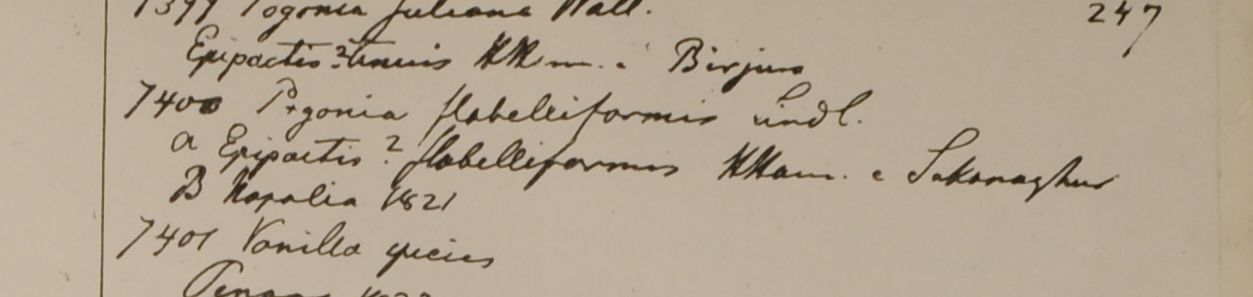 7399 Pogonia Juliana Wall. 247
Epipactis? tenuis HHam. e Birjura
7400 Pogonia flabelliformis Lindl.
a Epipactis? flabelliformis HHam. e Sukanaghur
B Napalia 1821
7401 Vanilla species
Penang